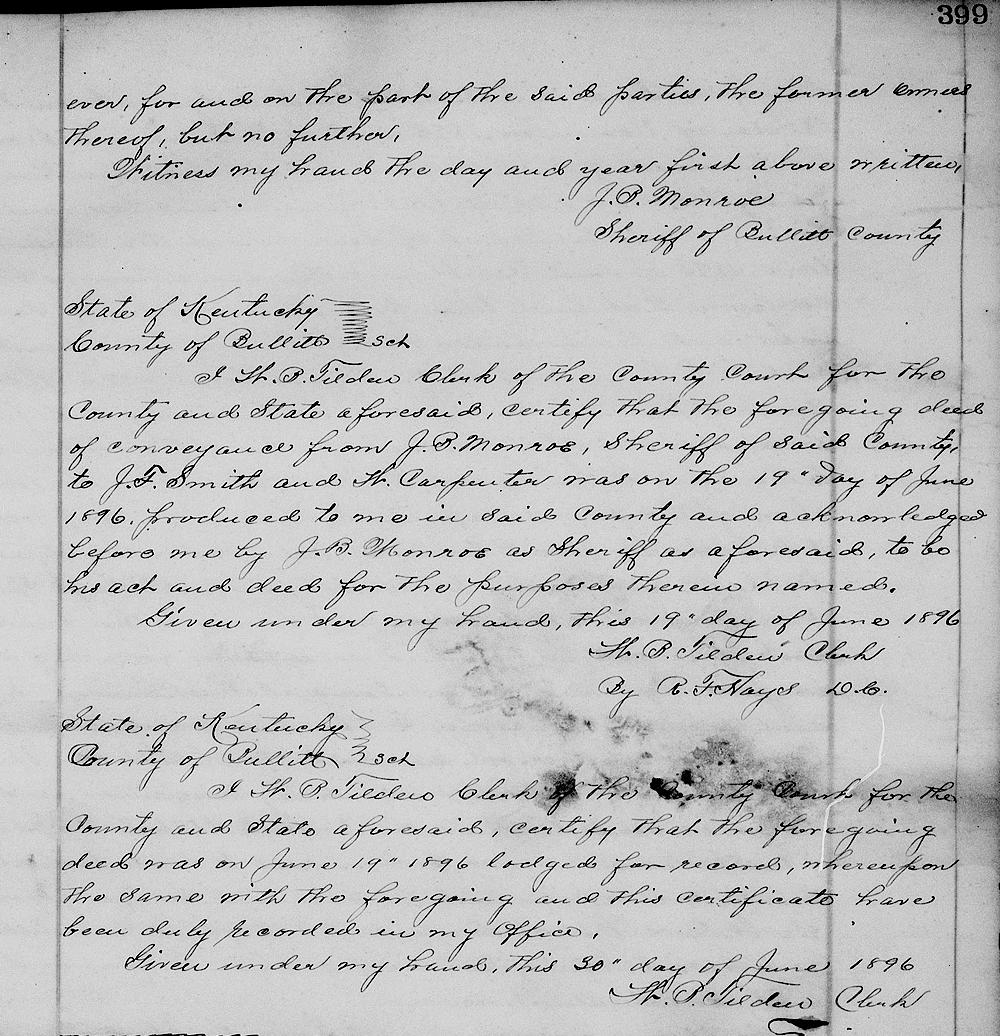 399
ever, for and on the part of the said parties, the former owners
thereof, but no further.
Witness my hand the day and year first above written,
J.B. Monroe
Sheriff of Bullitt County
State of Kentucky
County of Bullitt Sct
I W. P. Tilden Clerk of the County Court for the
County and State aforesaid, certify that the foregoing deed
of conveyance from J.B. Monroe, Sheriff of said County,
to J.F. Smith and W. Carpenter was on the 19" day of June
1896. produced to me in said County and acknowledged
before me by J.B. Monroe as Sheriff as aforesaid, to be
his act and deed for the purposes therein named.
Given under my hand, this 19" day of June 1896
W. P. Tilden Clerk
By R. F. Hays D.C.
State of Kentucky
County of Bullitt Sct
I W. P. Tilden Clerk of the County Court for the
County and State aforesaid, certify that the foregoing
deed was on June 19" 1896 lodged for record, whereupon
the same with the foregoing and this certificate have
been duly recorded in my Office.
Given under my hand, this 30" day of June 1896
W. P. Tilden Clerk